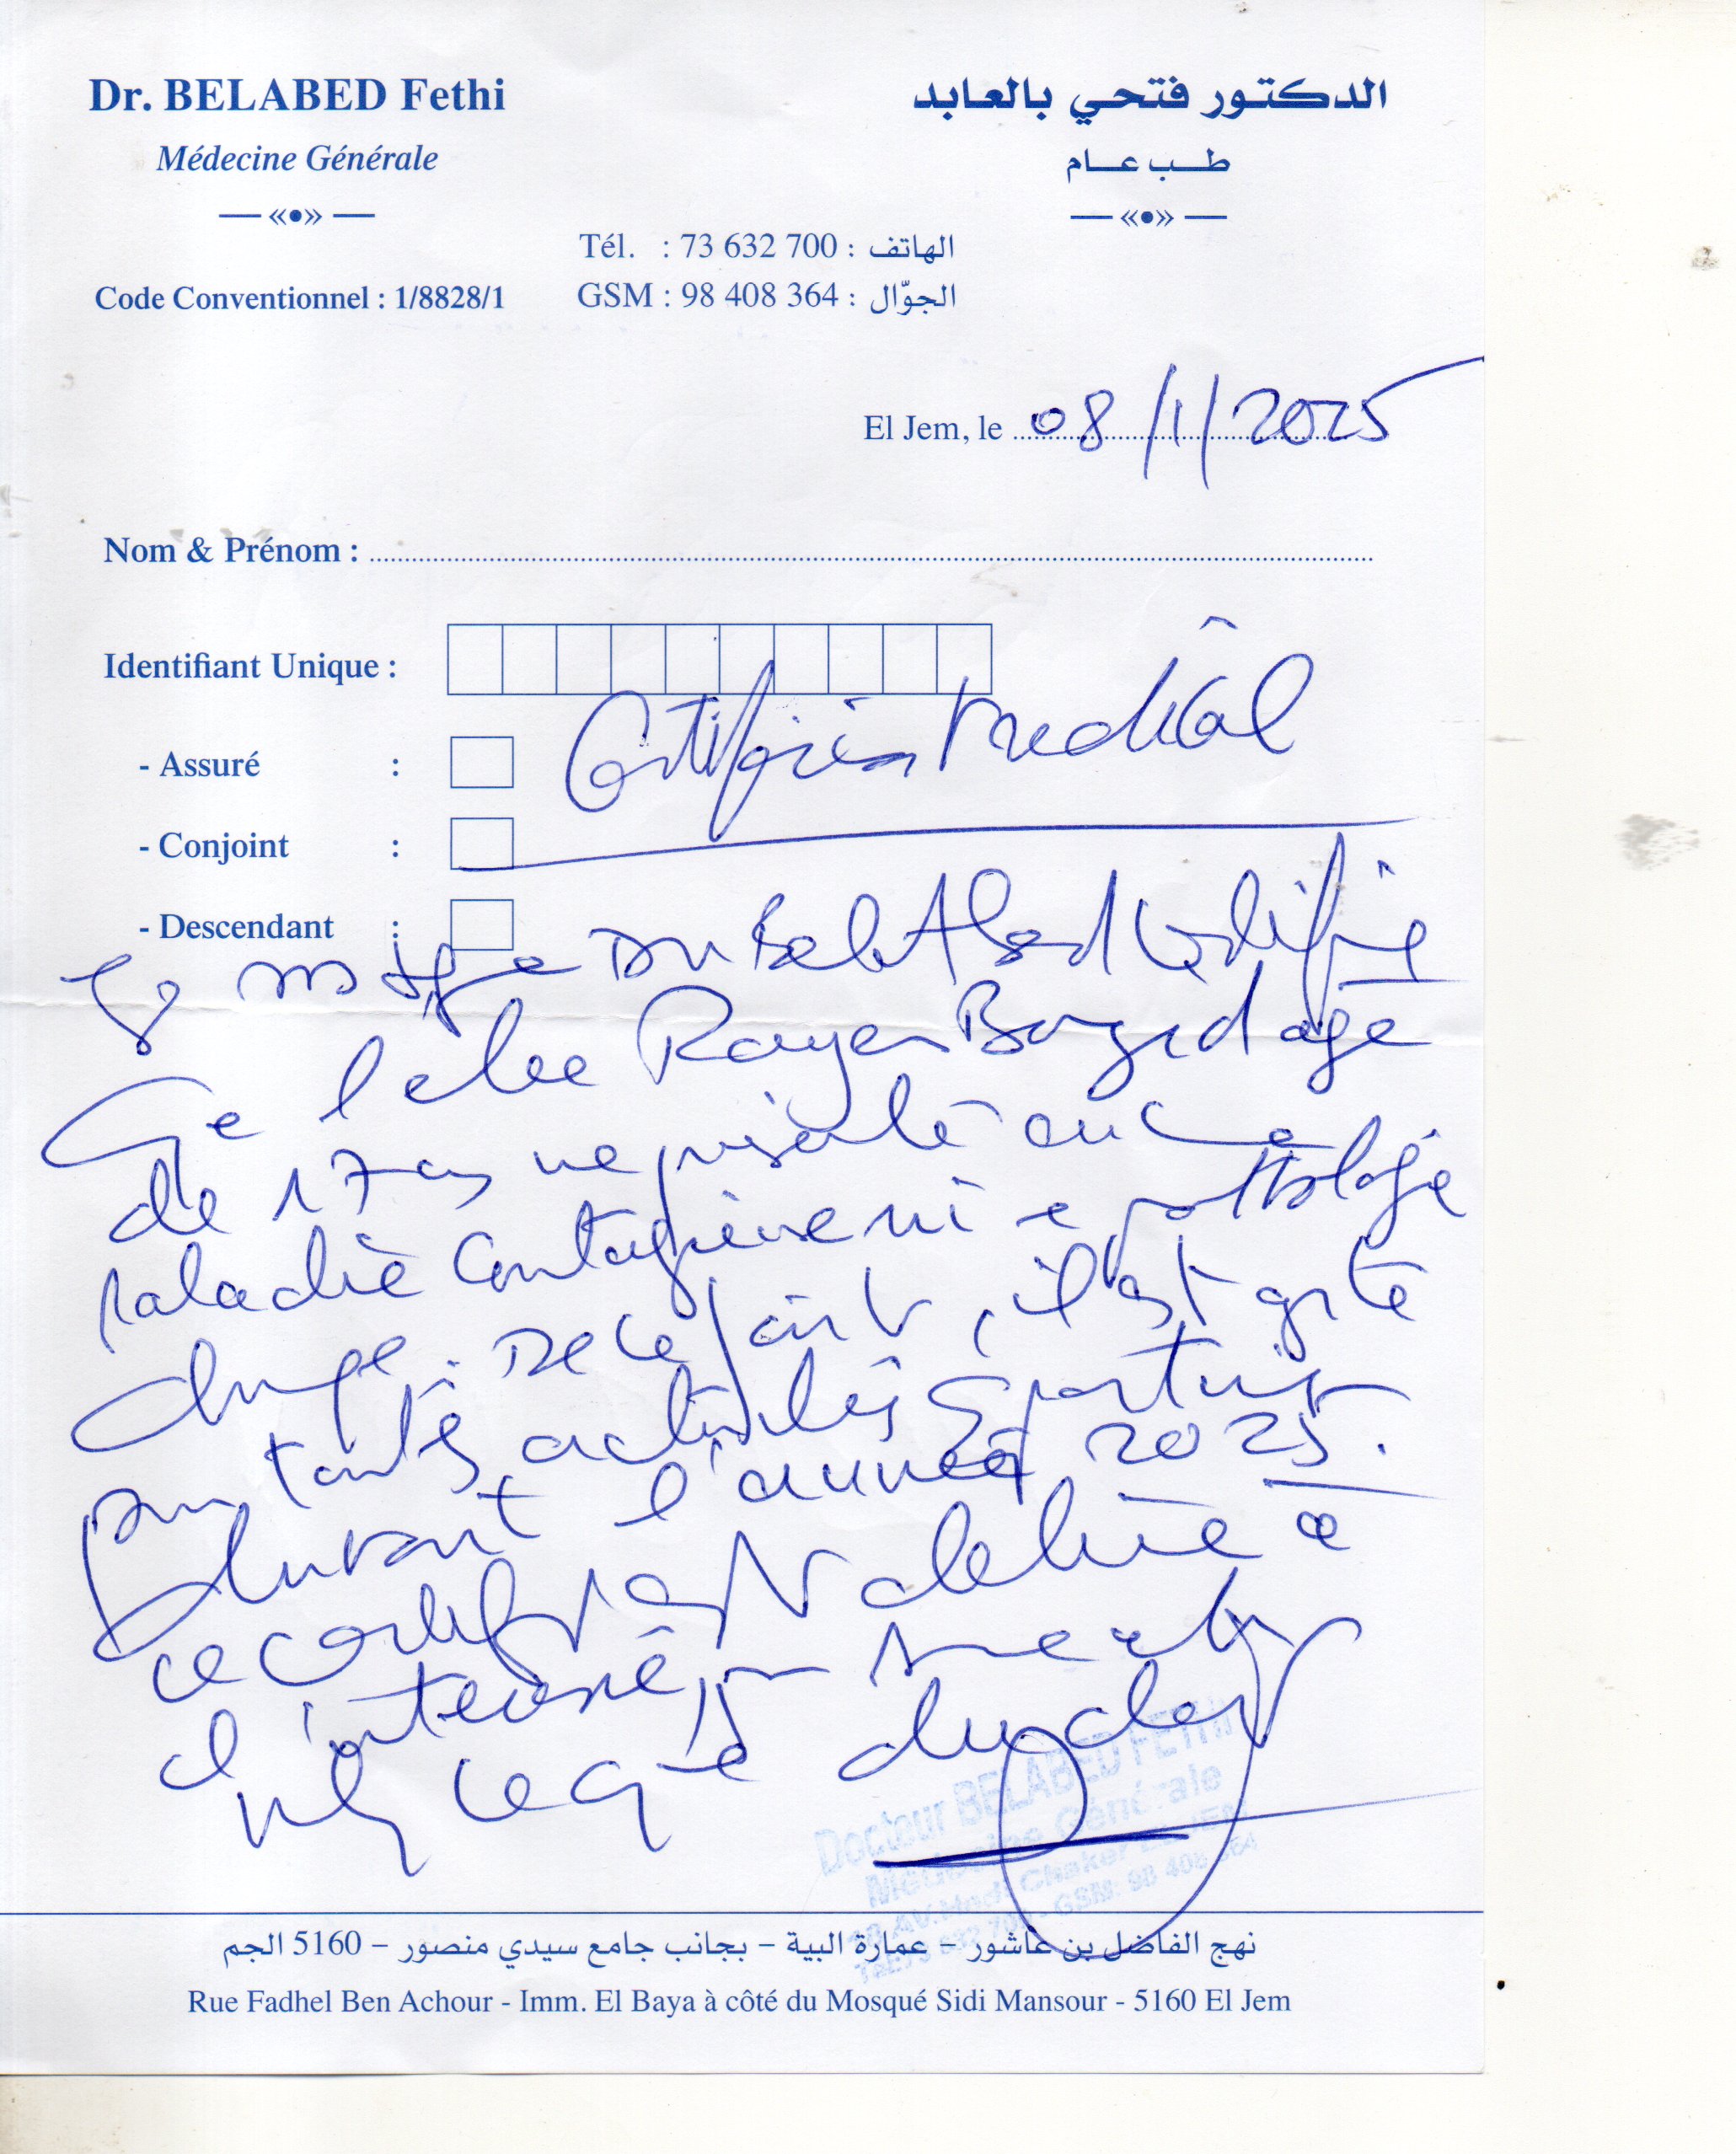 Dr. BELABED Fethi
Médecine Générale
الدكتور فتحي بالعابد
طب عام
Tél. : 73 632 700 : الهاتف
Code Conventionnel : 1/8828/1
GSM : 98 408 364 : الجوّال
El Jem, le 08/1/2025
Nom & Prénom :
Identifiant Unique :
Certificat Medical
- Assuré :
- Conjoint :
- Descendant :
Je Dr Bel Abed Certifie
que l'eleve Rayen Bouzid agé
de 17 ans ne présente aucune
maladie Contagieuse ni pathologie
De ce fait, il est apte
pour toutes activités Sportives
durant l'année 2025.
ce certificat délivré a
l'interessé
valoir ce que de droit
Docteur BELABED FETHI
Médecine Générale
AV. Hedi Chaker
GSM: 98 408 364
نهج الفاضل بن عاشور - عمارة البية - بجانب جامع سيدي منصور - 5160 الجم
Rue Fadhel Ben Achour - Imm. El Baya à côté du Mosqué Sidi Mansour - 5160 El Jem